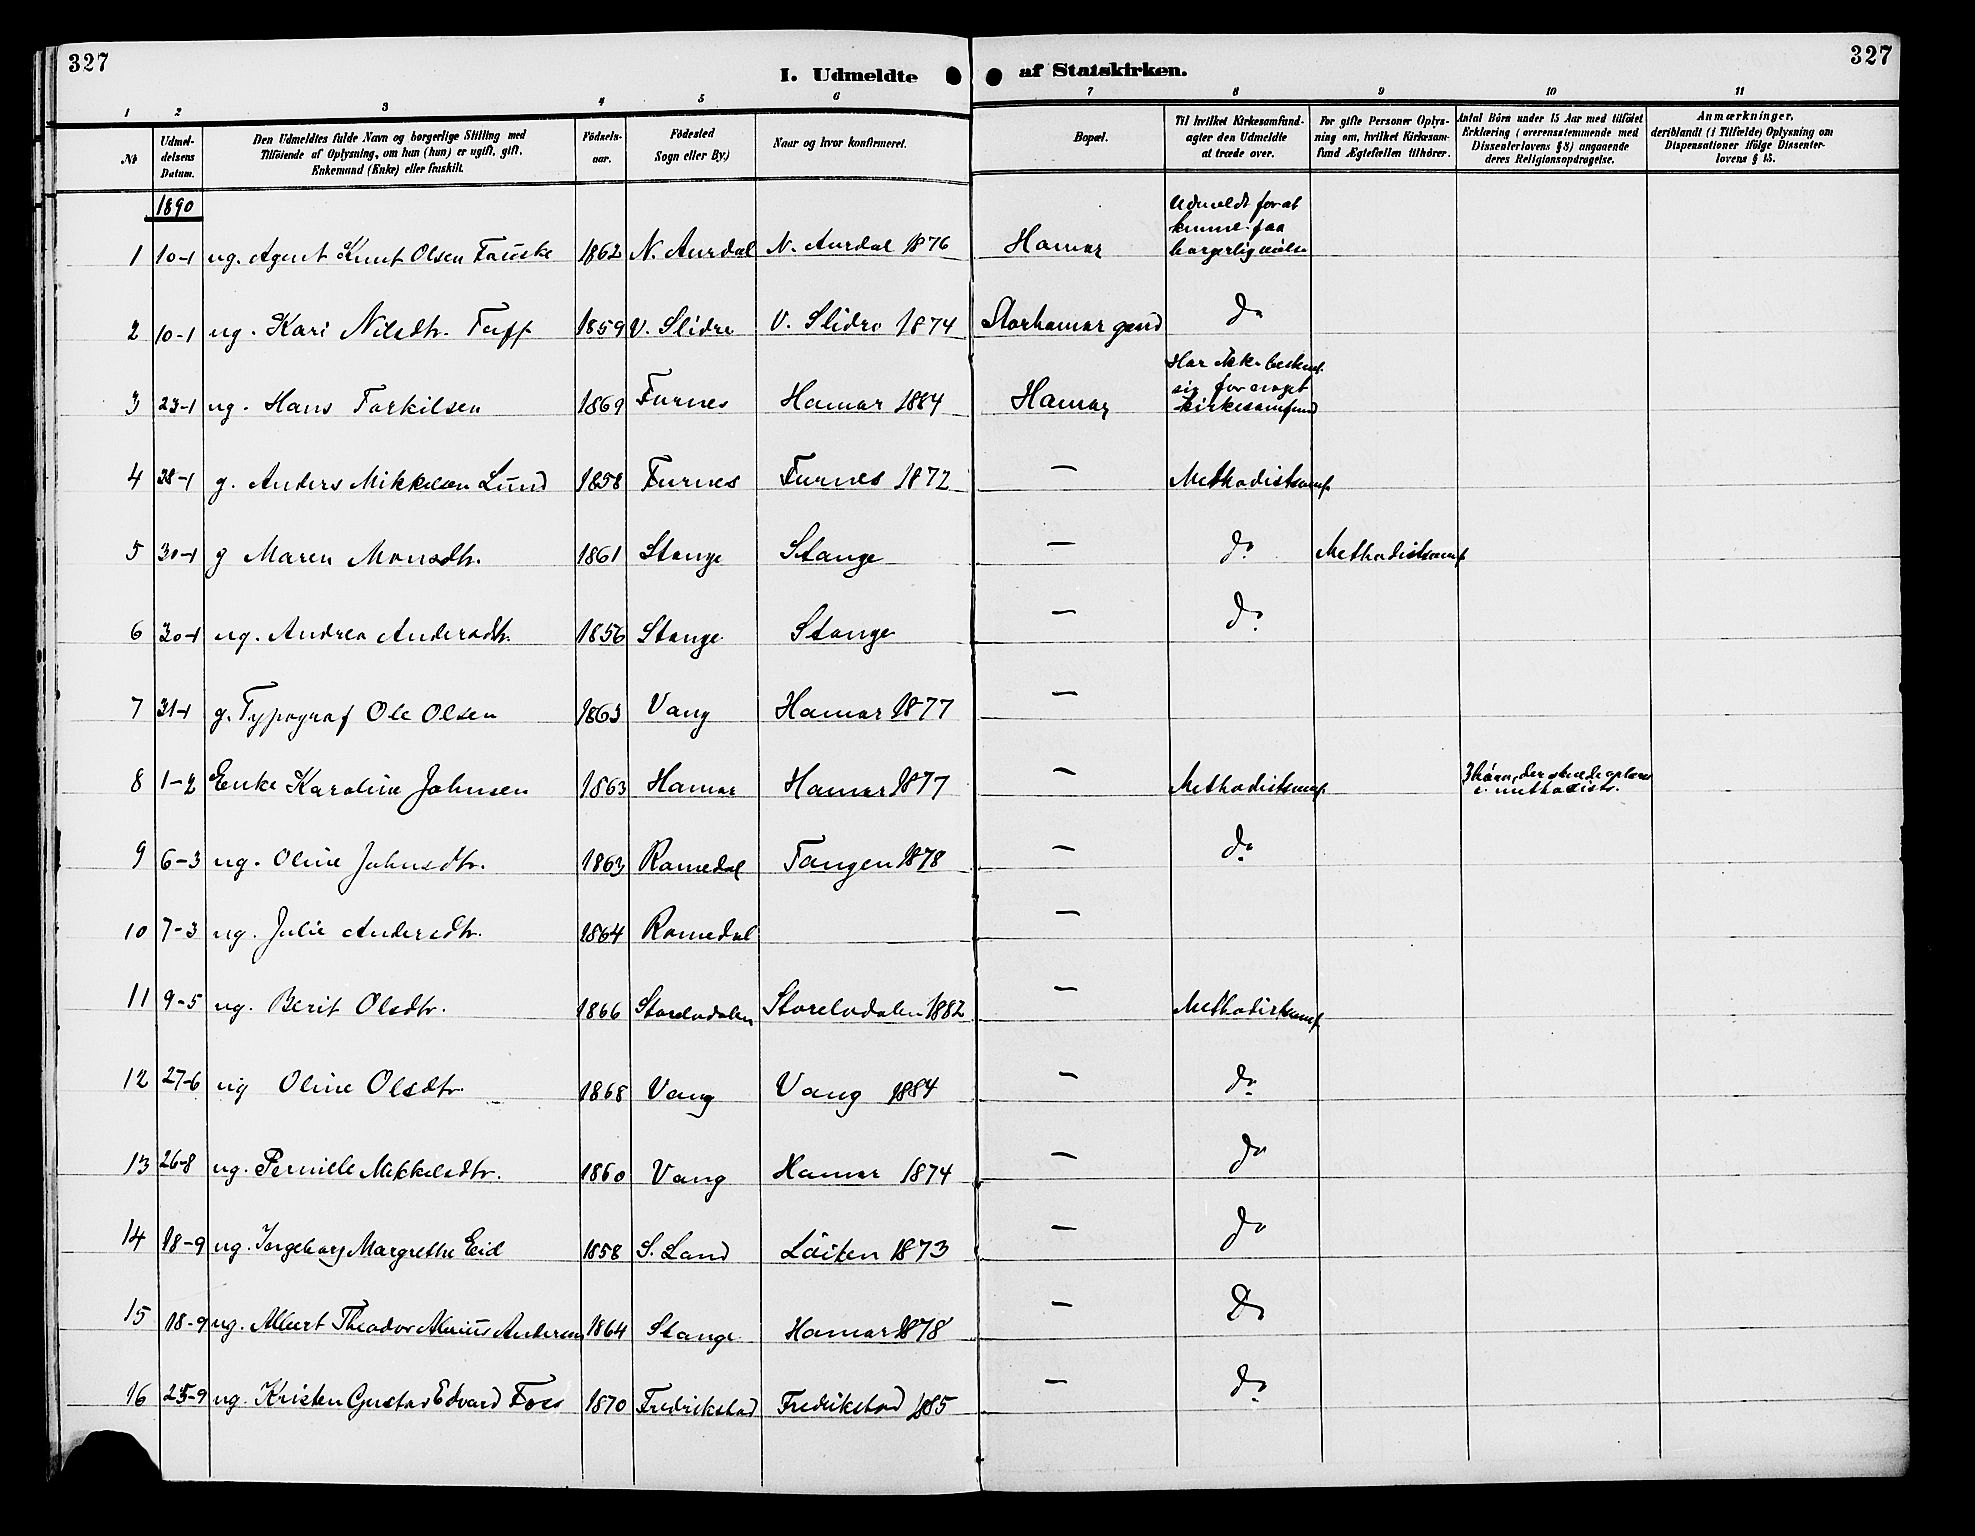 327
327
I. Udmeldte af Statskirken.
1 2 3 4 5 6 7 8 9 10 11
No
Udmel-
delsens
Datum.
Den Udmeldtes fulde Navn og borgerlige Stilling med
Tilföiende af Oplysning, om han (hun) er ugift, gift,
Enkemand (Enke) eller fraskilt.
Födsels-
aar.
Födested
Sogn eller By.)
Naar og hvor konfirmeret.
Bopæl.
Til hvilket Kirkesamfund-
agter den Udmeldte
at træde over.
For gifte Personer Oplys-
ning om, hvilket Kirkesam-
fund Ægtefællen tilhörer.
Antal Börn under 15 Aar med tilföiet
Erklæring (overensstemmende med
Dissenterlovens § 8) angaaende
deres Religionsopdragelse.
Anmærkninger,
deriblandt (i Tilfælde) Oplysning om
Dispensationer ifölge Dissenter-
lovens § 15.
1890
Udmeldt for at
kunne faa
borgerlig
1 10-1 ug. Agent Knut Olsen Fauske 1862 N. Aurdal N. Aurdal 1876 Hamar
2 10-1 ug. Kari Nilsdtr. 1859 V. Slidre V. Slidre 1874 Storhamar do
Har ikke bestemt
sig for noget
kirkesamfund
3 23-1 ug. Hans Torkilsen 1869 Furnes Hamar 1884 Hamar
4 28-1 g. Anders Mikkelsen Lund 1858 Furnes Furnes 1872 — Methodistsamf.
5 30-1 g Maren Monsdtr. 1861 Stange Stange — do Methodistsamf
6 30-1 ug. Andrea Andersdtr. 1856 Stange Stange — do
7 31-1 g. Typograf Ole Olsen 1863 Vang Hamar 1877 —
8 1-2 Enke Karoline Johnsen 1863 Hamar Hamar 1877 — Methodistsamf. 3 börn, der
i methodists.
9 6-3 ug. Oline Johnsdtr. 1863 Romedal Tangen 1878 — do
10 7-3 ug. Julie Andersdtr. 1864 Romedal —
11 9-5 ug. Berit Olsdtr. 1866 Storelvdalen Storelvdalen 1882 — Methodistsamf
12 27-6 ug Oline Olsdtr. 1868 Vang Vang 1884 — do
13 26-8 ug. Pernille Mikkelsdtr. 1860 Vang Hamar 1874 — do
14 18-9 ug. Ingeborg Margrethe Eid 1858 S. Land Löiten 1873 — do
15 18-9 ug. Albert Theodor Andersen 1864 Stange Hamar 1878 — do
16 25-9 ug. Kristen Gustav Edvard Foss 1870 Fredrikstad Fredrikstad 1885 — do